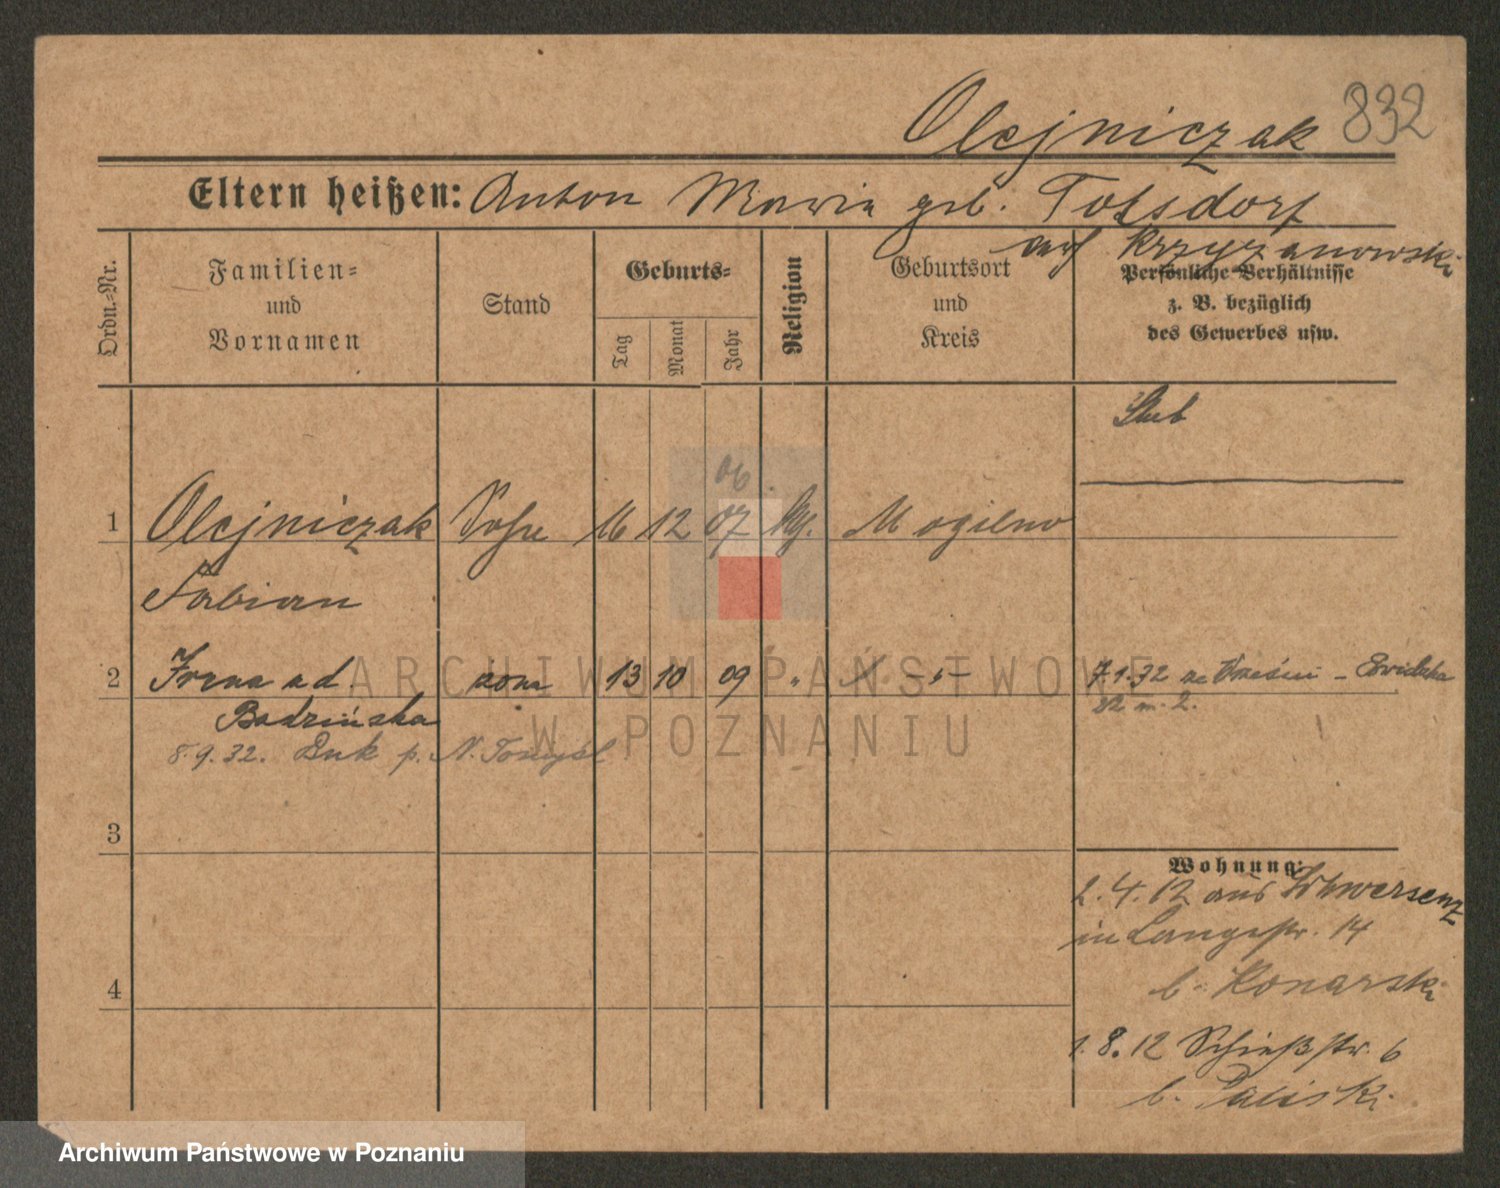 Olejniczak 832
Eltern heißen: Anton Maria geb. Tolsdorf
Krzyzanowski
Ordn.-Nr.
Familien-
und
Vornamen
Stand
Geburts-
Tag
Monat
Jahr
Religion
Geburtsort
und
Kreis
Persönliche Verhältnisse
z. B. bezüglich
des Gewerbes usw.
06
1 Olejniczak Sohn 16 12 07 Mogilno
Fabian
2 Irena zd. 13 10 09 " - " - 7.1.32
Badzińska
22 m. 2.
8.9.32. Buk p. N. Tomyśl
3
Wohnung:
2.4.12 aus Schwersenz
in Langestr. 14
b. Konarski
4
1.8.12 Schießstr. 6
b. Paliski
ARCHIWUM PAŃSTWOWE
W POZNANIU
Archiwum Państwowe w Poznaniu